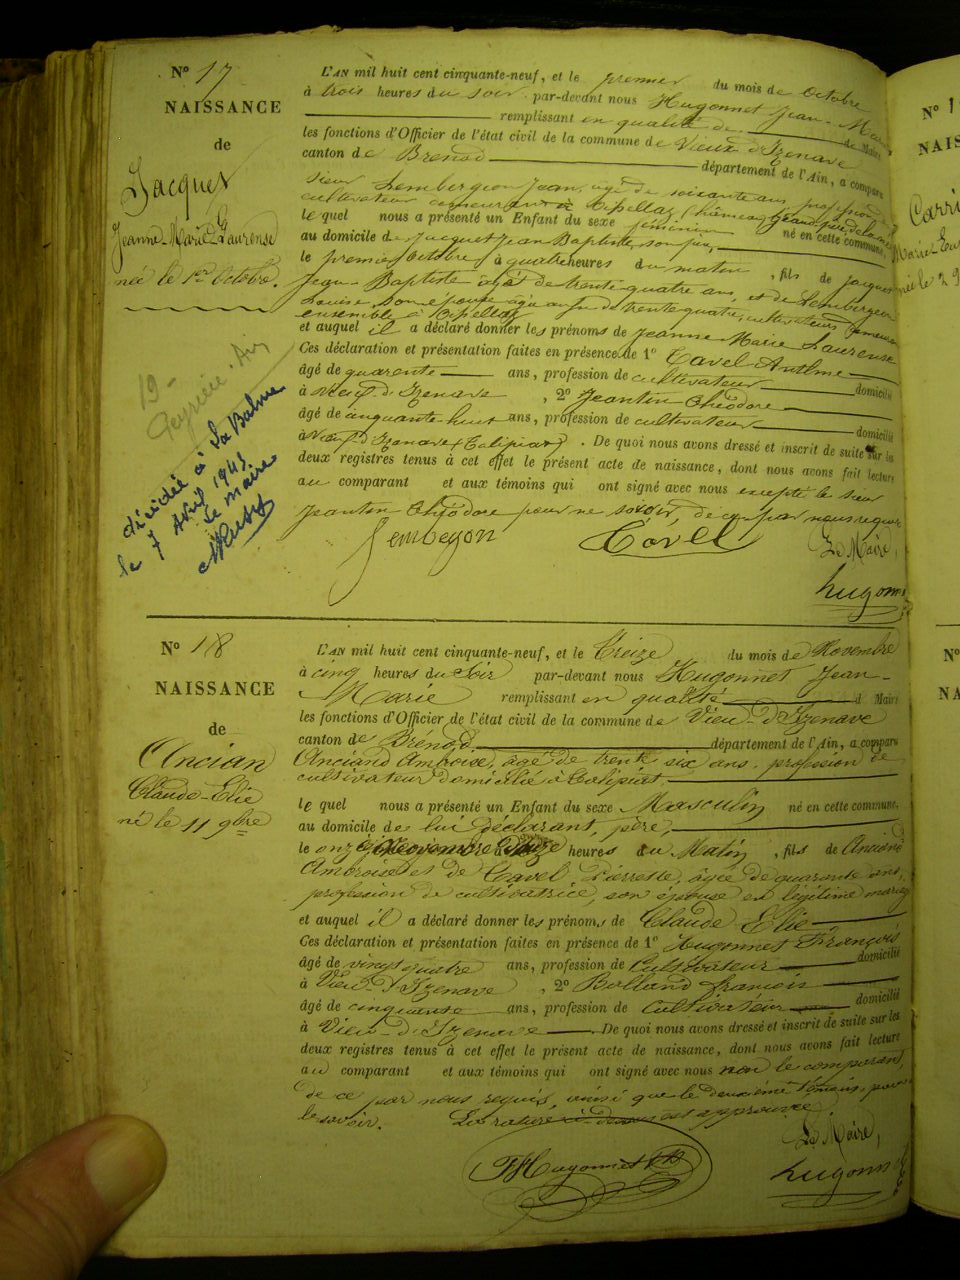 N° 17
NAISSANCE
de
Jacquet
Jeanne-Marie-Laurense
née le 1er Octobre.
19-
décédée à La Balme
le 7 Avril 1941
Le maire
L'AN mil huit cent cinquante-neuf, et le premier du mois de Octobre
à trois heures du soir par-devant nous Hugonnet Jean-
remplissant en qualité de Maire
les fonctions d'Officier de l'état civil de la commune de Vieux d'Izenave
canton de Brenod département de l'Ain, a comparu
sieur Jean, âgé de soixante ans, profession de
cultivateur demeurant à
le quel nous a présenté un Enfant du sexe féminin né en cette commune,
au domicile de Jacquet Jean Baptiste, son père,
le premier Octobre, à quatre heures du matin, fils de Jacquet
Jean-Baptiste âgé de trente quatre ans, et de
Louise son épouse âgée aussi de trente quatre, cultivateurs demeurant
ensemble à
et auquel il a déclaré donner les prénoms de Jeanne Marie Laurense
Ces déclaration et présentation faites en présence de 1° Cavel Anthme
âgé de quarente ans, profession de cultivateur domicilié
à Vieux d'Izenave, 2° Jeantin Théodore
âgé de cinquante huit ans, profession de cultivateur domicilié
à Vieux d'Izenave. De quoi nous avons dressé et inscrit de suite sur les
deux registres tenus à cet effet le présent acte de naissance, dont nous avons fait lecture
au comparant et aux témoins qui ont signé avec nous excepté le sieur
Jeantin Théodore pour ne savoir, de ce par nous requis
Cavel
Le Maire,
hugonn
N° 18
NAISSANCE
de
Ancian
Claude-Elie
né le 11 9bre
L'AN mil huit cent cinquante-neuf, et le Treize du mois de Novembre
à cinq heures du Soir par-devant nous Hugonnet Jean-
Marie remplissant en qualité d Maire
les fonctions d'Officier de l'état civil de la commune de Vieu-d'Izenave
canton de Brénod département de l'Ain, a comparu
Anciand Ambroise, âgé de trente six ans, profession de
cultivateur domicilié à
le quel nous a présenté un Enfant du sexe Masculin né en cette commune,
au domicile de lui déclarant, père,
le onze Novembre à heures du Matin, fils de Anciand
Ambroise et de Cavel Pierrette, âgée de quarante ans,
profession de cultivatrice, son épouse en légitime mariage
et auquel il a déclaré donner les prénoms de Claude Elie
Ces déclaration et présentation faites en présence de 1° Hugonnet François
âgé de vingt quatre ans, profession de Cultivateur domicilié
à Vieu-d'Izenave, 2° Bolland françois
âgé de cinquante ans, profession de Cultivateur domicilié
à Vieu-d'Izenave. De quoi nous avons dressé et inscrit de suite sur les
deux registres tenus à cet effet le présent acte de naissance, dont nous avons fait lecture
au comparant et aux témoins qui ont signé avec nous non le comparant,
de ce par nous requis, ainsi que le deuxième témoin, pour
le savoir. La rature ci-dessus est approuvée
Le Maire,
hugonn
N° 1
NAIS
Carri
N°
NA